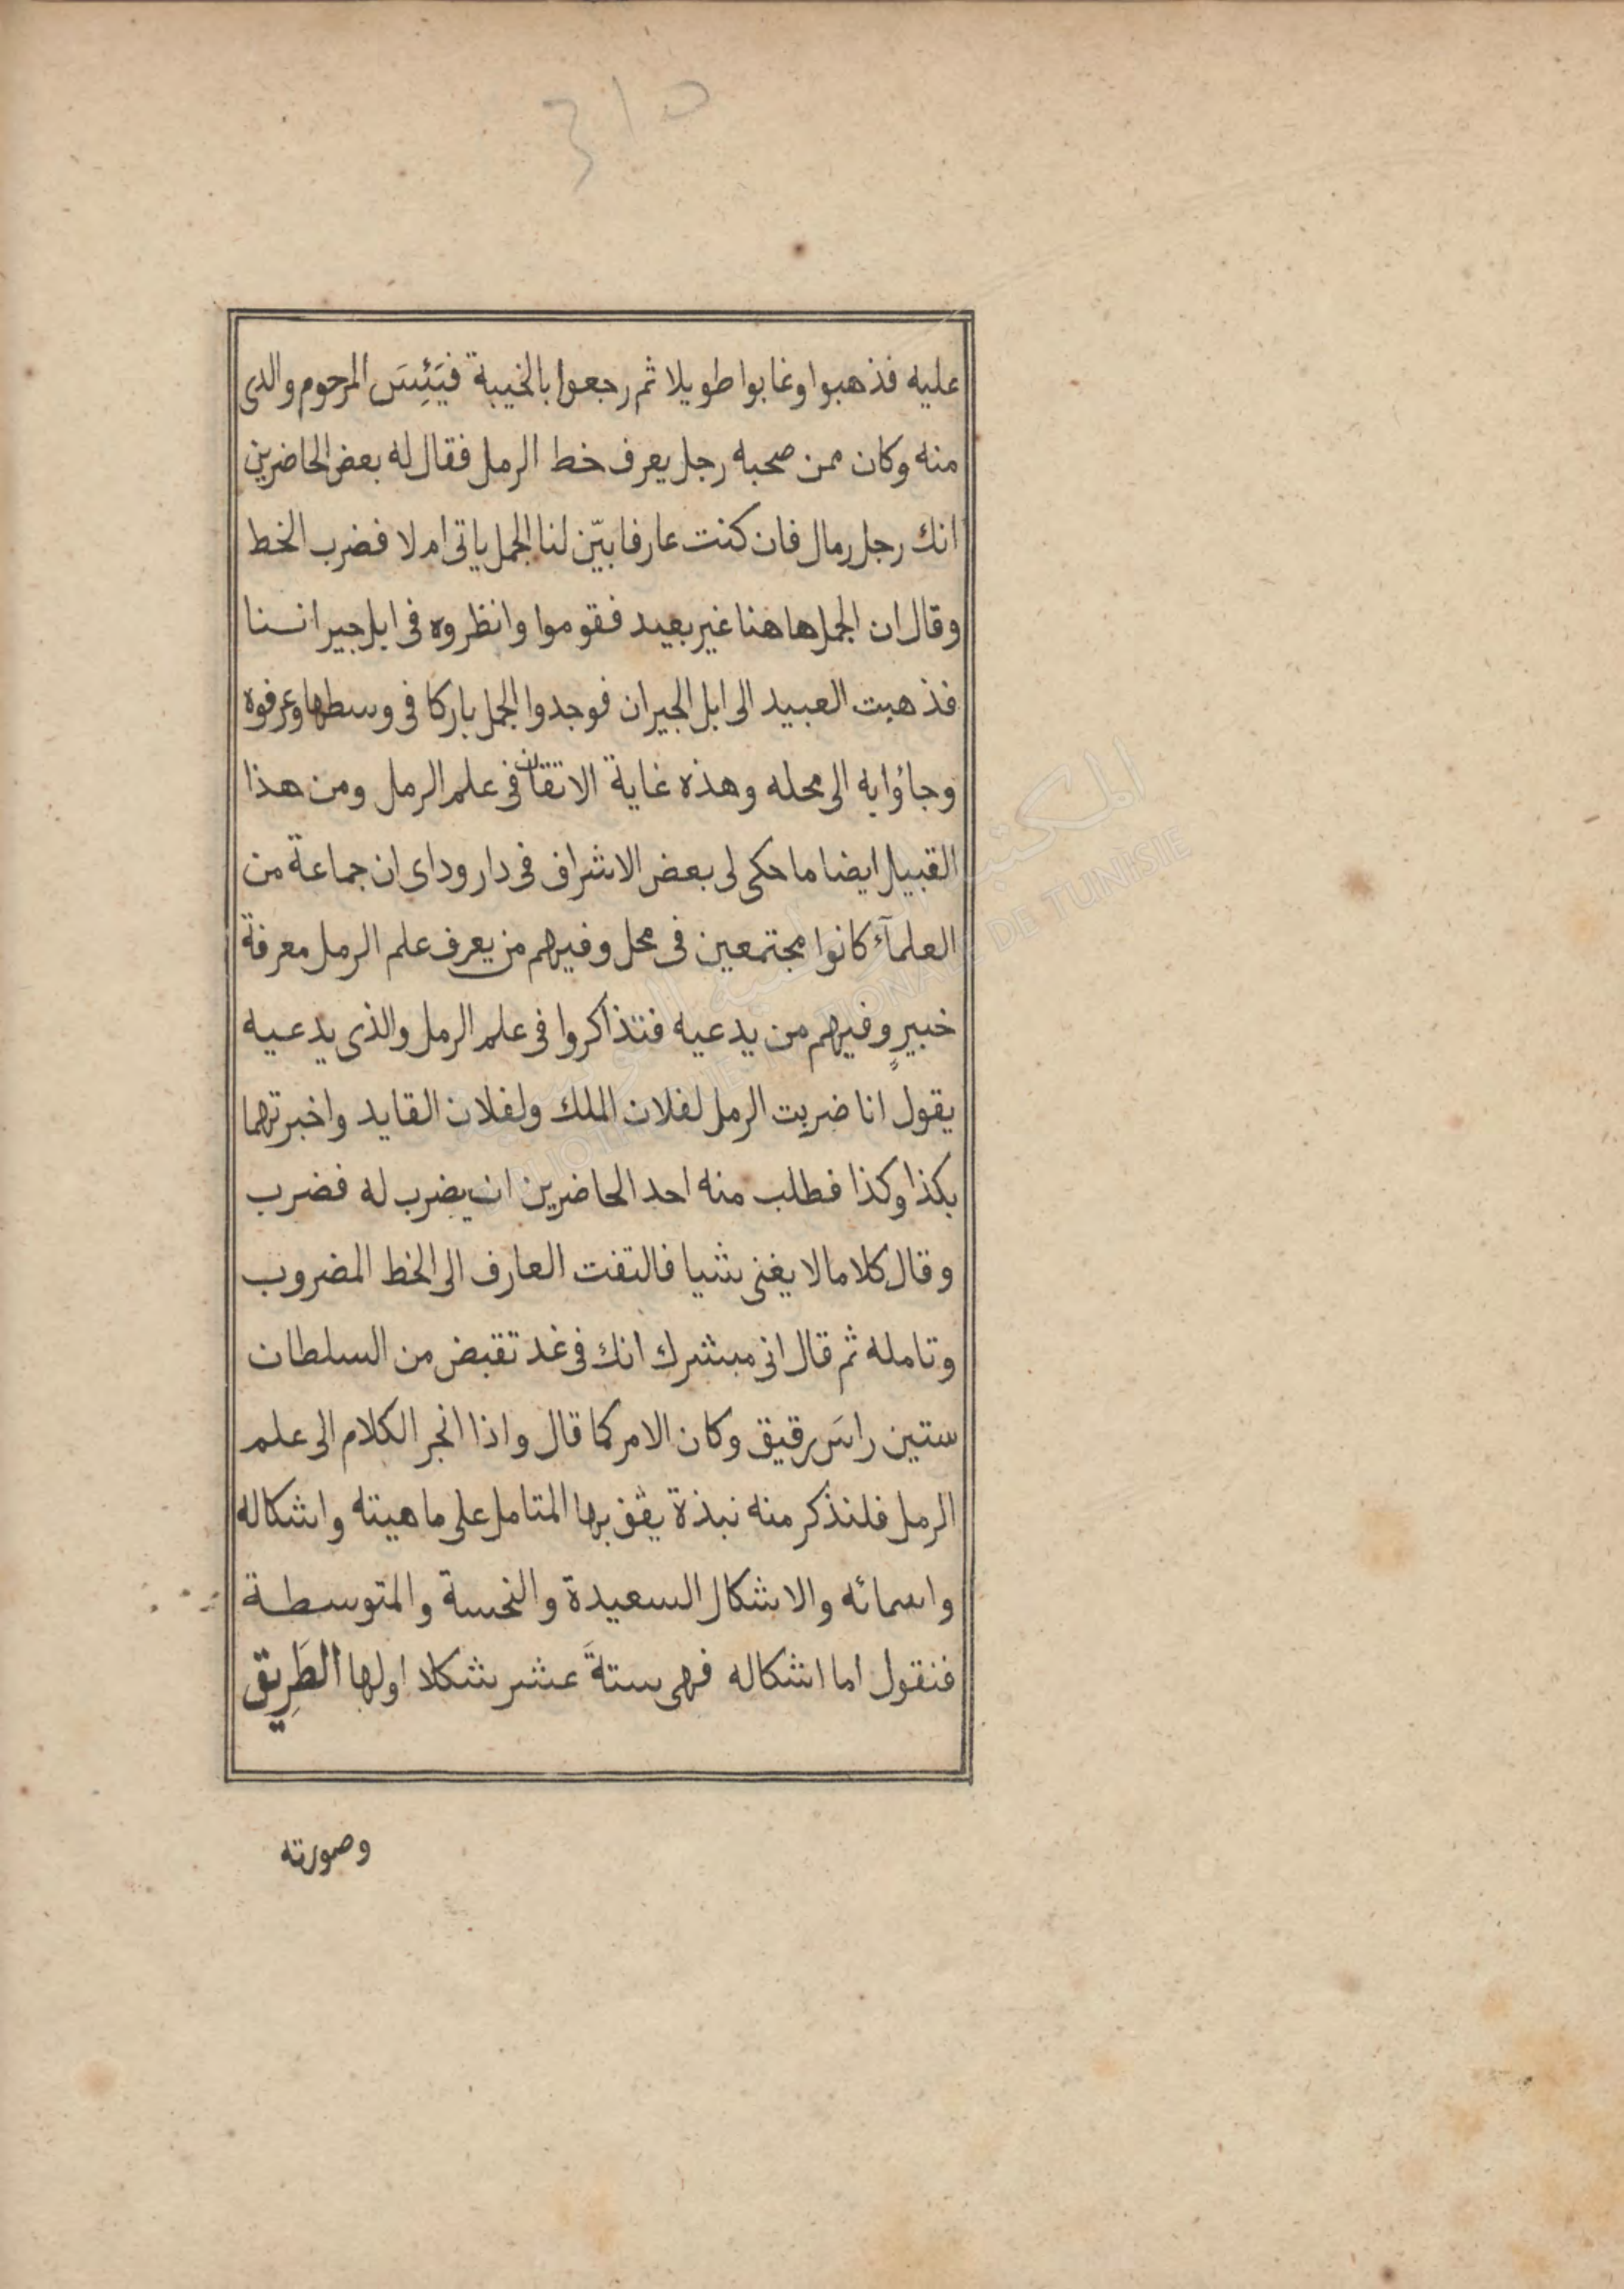 310
عليه فذهبوا وغابوا طويلا ثم رجعوا بالخيبة فيَئِسَ المرحوم والدى
منه وكان ممن صحبه رجل يعرف خط الرمل فقال له بعض الحاضرين
انك رجل رمال فان كنت عارفا بيّن لنا الجمل ياتى ام لا فضرب الخط
وقال ان الجمل هاهنا غير بعيد فقوموا وانظروه فى ابل جيراننا
فذهبت العبيد الى ابل الجيران فوجدوا الجمل باركا فى وسطها وعرفوه
وجاؤا به الى محله وهذه غاية الاتقان فى علم الرمل ومن هذا
القبيل ايضا ما حكى لى بعض الاشراف فى دار وداى ان جماعة من
العلمآء كانوا مجتمعين فى محل وفيهم من يعرف علم الرمل معرفة
خبيرٍ وفيهم من يدعيه فتذاكروا فى علم الرمل والذى يدعيه
يقول انا ضربت الرمل لفلان الملك ولفلان القايد واخبرتهما
بكذا وكذا فطلب منه احد الحاضرين ان يضرب له فضرب
وقال كلاما لا يغنى شيا فالتفت العارف الى الخط المضروب
وتامله ثم قال انى مبشرك انك فى غد تقبض من السلطان
ستين راسَ رقيق وكان الامر كما قال واذا انجر الكلام الى علم
الرمل فلنذكر منه نبذة يقف بها المتامل على ماهيته واشكاله
واسمائه والاشكال السعيدة والنحسة والمتوسطة
فنقول اما اشكاله فهى ستةَ عشر شكلا اولها الطَرِيق
وصورته
المكتبة
BIBLIOTHEQUE NATIONALE DE TUNISIE